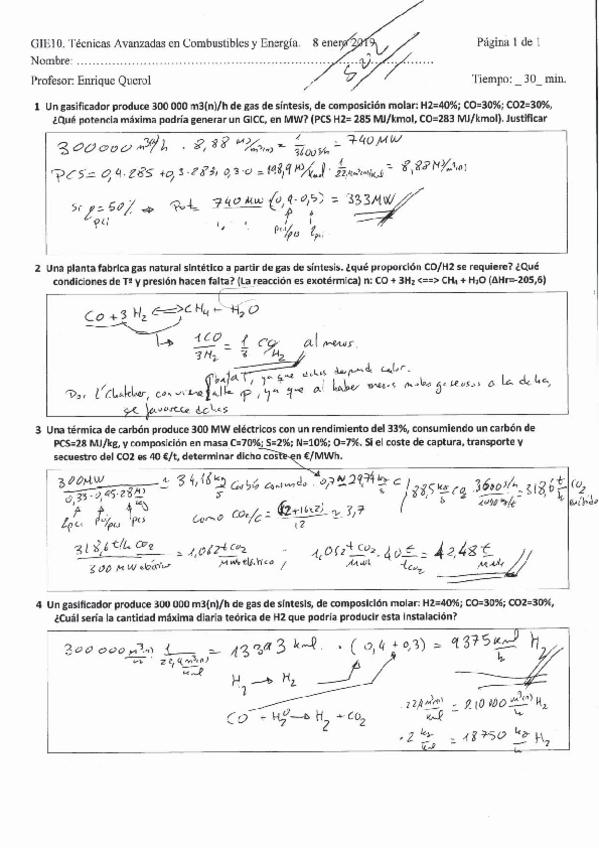 GIE10. Técnicas Avanzadas en Combustibles y Energía. 8 enero 2019 Página 1 de 1
Nombre: ……………………………………………………………
Profesor: Enrique Querol Tiempo: _ 30_ min.
1 Un gasificador produce 300 000 m3(n)/h de gas de síntesis, de composición molar: H2=40%; CO=30%; CO2=30%,
¿Qué potencia máxima podría generar un GICC, en MW? (PCS H2= 285 MJ/kmol, CO=283 MJ/kmol). Justificar
300000 m³(n)/h · 8,88 MJ/m³(n) = 1/3600 s/h = 740 MW
PCS = 0,4·285 + 0,3·283 + 0,3·0 = 198,9 MJ/kmol · 1/22,4 m³(n)/kmol = 8,88 MJ/m³(n)
Si η=50% pci ⇒ Pot= 740 MW (0,9·0,5) = 333 MW
pci/pcs η pci
2 Una planta fabrica gas natural sintético a partir de gas de síntesis. ¿qué proporción CO/H2 se requiere? ¿Qué
condiciones de Tª y presión hacen falta? (La reacción es exotérmica) n: CO + 3H₂ <==> CH₄ + H₂O (ΔHr=-205,6)
CO + 3H₂ <=> CH₄ + H₂O
↳ 1CO/3H₂ = 1/3 CO/H₂ al menos.
baja T, ya que dchas desprende calor.
Por l'Chatelier, conviene alta p, ya que al haber menos moles gaseosos a la dcha,
se favorece dchas
3 Una térmica de carbón produce 300 MW eléctricos con un rendimiento del 33%, consumiendo un carbón de
PCS=28 MJ/kg, y composición en masa C=70%; S=2%; N=10%; O=7%. Si el coste de captura, transporte y
secuestro del CO2 es 40 €/t, determinar dicho coste en €/MWh.
300 MW / 0,33·0,95·28 MJ/kg = 34,18 kg/s Carbón consumido · 0,7 = 23,93 kg/s C
ηpci pci/pcs pcs
88,5 kg CO₂/s · 3600 s/h / 1000 kg/t = 318,6 t/h CO₂ emitido
como CO₂/C = (12+16x2)/12 = 3,7
318,6 t/h CO₂ / 300 MW eléctrico = 1,062 t CO₂/MWh eléctrico ; 1,062 t CO₂/MWh · 40 €/t CO₂ = 42,48 €/MWh
4 Un gasificador produce 300 000 m3(n)/h de gas de síntesis, de composición molar: H2=40%; CO=30%; CO2=30%,
¿Cuál sería la cantidad máxima diaria teórica de H2 que podría producir esta instalación?
300 000 m³(n)/h · 1/22,4 m³(n)/kmol = 13393 kmol · (0,4 + 0,3) = 9375 kmol/h H₂
H₂ → H₂
CO + H₂O → H₂ + CO₂
· 22,4 m³(n)/kmol = 210000 m³(n)/h H₂
· 2 kg/kmol = 18750 kg/h H₂